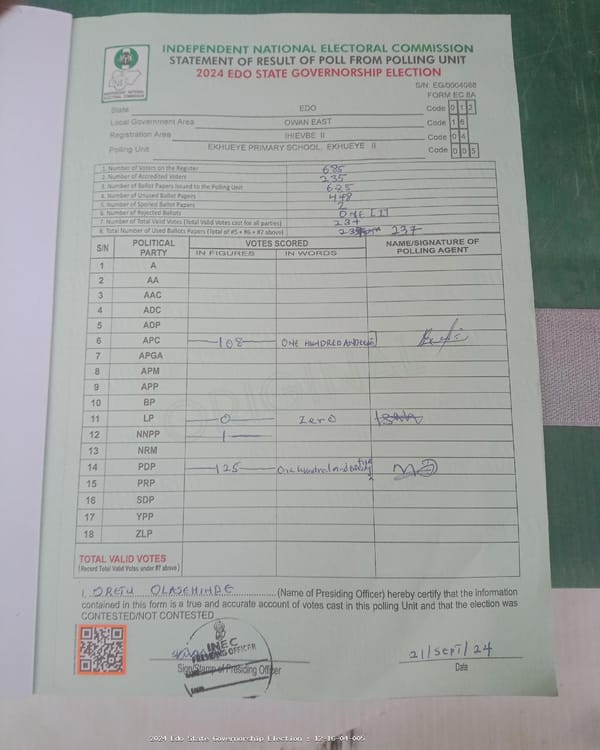 INDEPENDENT NATIONAL ELECTORAL COMMISSION
STATEMENT OF RESULT OF POLL FROM POLLING UNIT
2024 EDO STATE GOVERNORSHIP ELECTION
S/N: EG/0004088
FORM EC 8A
State EDO Code 0 1 2
Local Government Area OWAN EAST Code 1 6
Registration Area IHIEVBE II Code 0 4
Polling Unit EKHUEYE PRIMARY SCHOOL, EKHUEYE II Code 0 0 5
1. Number of Voters on the Register 685
2. Number of Accredited Voters 235
3. Number of Ballot Papers Issued to the Polling Unit 685
4. Number of Unused Ballot Papers 448
5. Number of Spoiled Ballot Papers 2
6. Number of Rejected Ballots ONE [1]
7. Number of Total Valid Votes (Total Valid Votes cast for all parties) 234
8. Total Number of Used Ballots Papers (Total of #5 + #6 + #7 above) 237
S/N POLITICAL PARTY VOTES SCORED NAME/SIGNATURE OF POLLING AGENT
IN FIGURES IN WORDS
1 A
2 AA
3 AAC
4 ADC
5 ADP
6 APC 108 ONE HUNDRED AND
7 APGA
8 APM
9 APP
10 BP
11 LP 0 Zero
12 NNPP 1
13 NRM
14 PDP 125 One hundred and
15 PRP
16 SDP
17 YPP
18 ZLP
TOTAL VALID VOTES
(Record Total Valid Votes under #7 above)
I, ORETU OLASEHINDE (Name of Presiding Officer) hereby certify that the information
contained in this form is a true and accurate account of votes cast in this polling Unit and that the election was
CONTESTED/NOT CONTESTED
INEC
PRESIDING OFFICER
21/SEPT/24
Sign/Stamp of Presiding Officer Date
2024 Edo State Governorship Election : 12-16-04-005